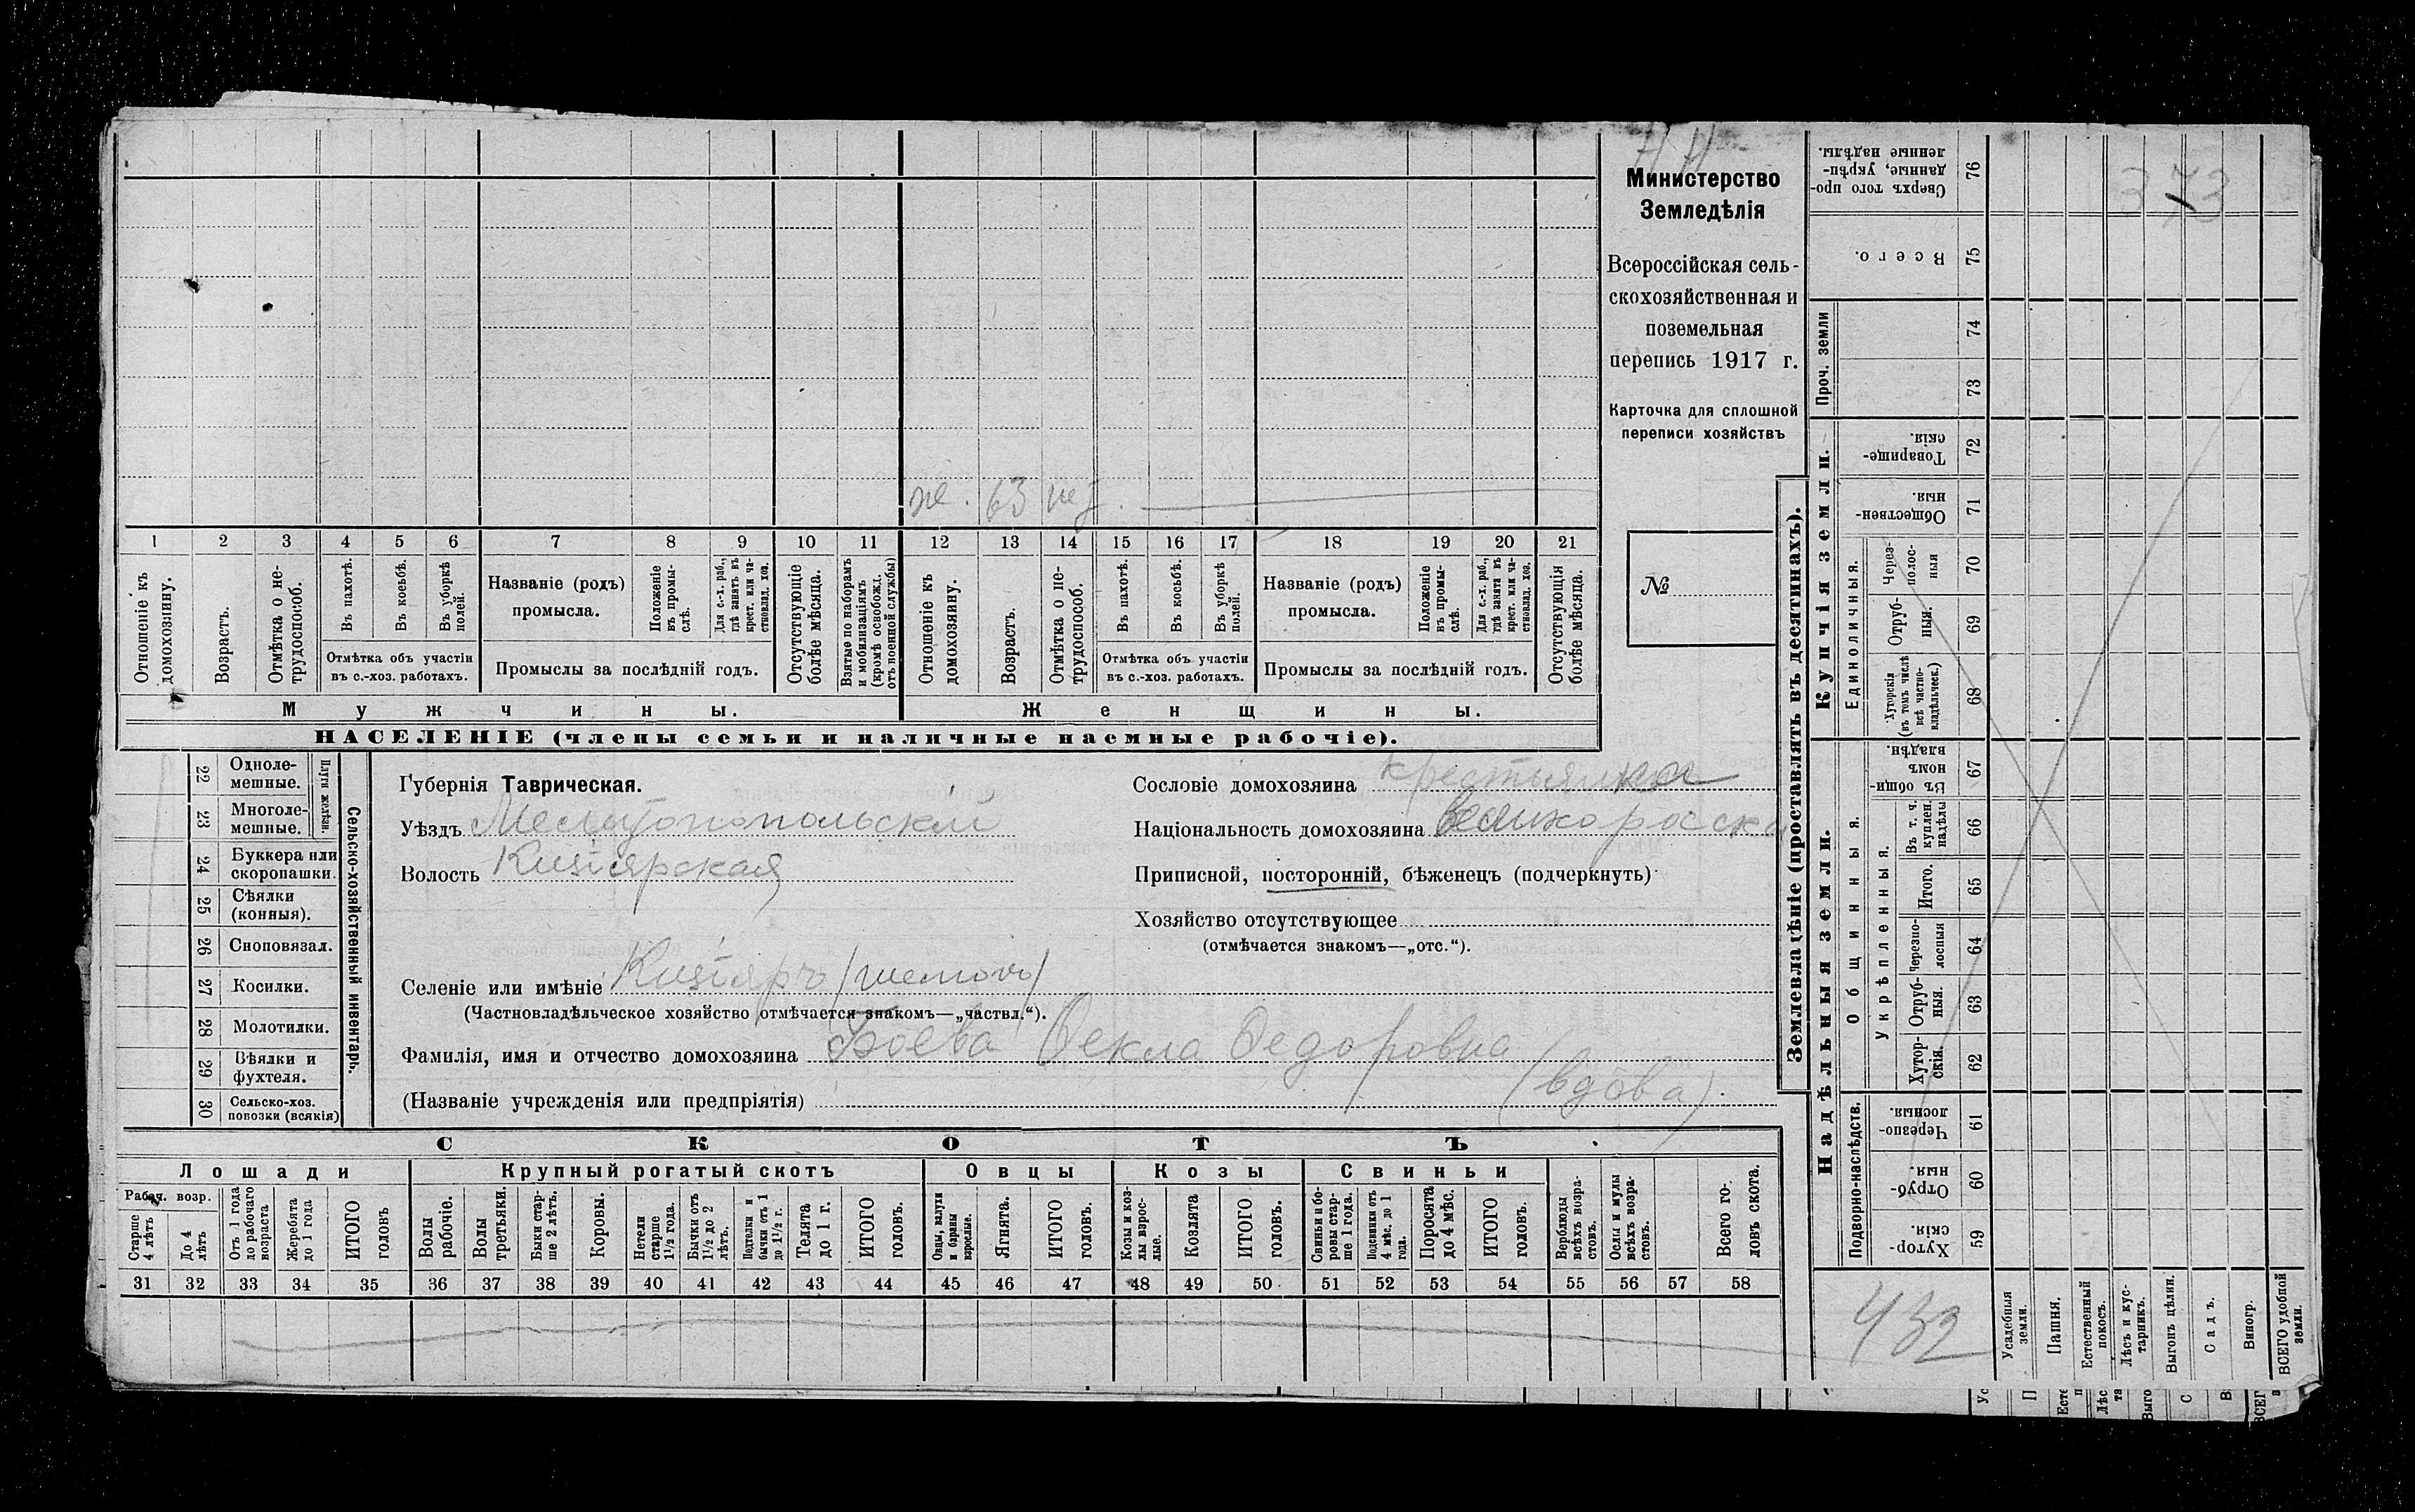 Н Н
Министерство
Земледѣлія
Всероссійская сель-
скохозяйственная и
поземельная
перепись 1917 г.
Карточка для сплошной
переписи хозяйствъ
№
же. 63 не
1 2 3 4 5 6 7 8 9 10 11 12 13 14 15 16 17 18 19 20 21
Отношеніе къ домохозяину.
Возрастъ.
Отмѣтка о не-
трудоспособ.
Въ пахотѣ.
Въ косьбѣ.
Въ уборкѣ полей.
Отмѣтка объ участіи
въ с.-хоз. работахъ.
Названіе (родъ)
промысла.
Положеніе въ промы-
слѣ.
Для с.-х. раб.,
гдѣ занятъ въ
крест. или ча-
стновлад. хоз.
Промыслы за послѣдній годъ.
Отсутствующіе
болѣе мѣсяца.
Взятые по наборамъ
и мобилизаціямъ
(кромѣ освобожд.
отъ военной службы)
Отношеніе къ
домохозяину.
Возрастъ.
Отмѣтка о не-
трудоспособ.
Въ пахотѣ.
Въ косьбѣ.
Въ уборкѣ полей.
Отмѣтка объ участіи
въ с.-хоз. работахъ.
Названіе (родъ)
промысла.
Положеніе
въ промы-
слѣ.
Для с.-х. раб.,
гдѣ занята въ
крест. или ча-
стновлад. хоз.
Промыслы за послѣдній годъ.
Отсутствующія
болѣе мѣсяца.
Мужчины.
Женщины.
НАСЕЛЕНІЕ (члены семьи и наличные наемные рабочіе).
22 Одноле-
мешные.
23 Многоле-
мешные.
Плуги желѣзн.
24 Буккера или
скоропашки.
25 Сѣялки
(конныя).
26 Сноповязал.
27 Косилки.
28 Молотилки.
29 Вѣялки и
фухтеля.
30 Сельско-хоз.
повозки (всякія)
Сельско-хозяйственный инвентарь.
Губернія Таврическая.
Уѣздъ Мелитопопольскій
Волость Кизіярская
Сословіе домохозяина крестьянка
Національность домохозяина Великоросска
Приписной, посторонній, бѣженецъ (подчеркнуть)
Хозяйство отсутствующее
(отмѣчается знакомъ—„отс.“).
Селеніе или имѣніе Кизіяръ
(Частновладѣльческое хозяйство отмѣчается знакомъ—„частвл.“).
Фамилія, имя и отчество домохозяина Боева Ѳекла Ѳедоровна
(Названіе учрежденія или предпріятія) (вдова).
СКОТЪ
Лошади
Крупный рогатый скотъ
Овцы
Козы
Свиньи
Рабоч. возр.
Старше
4 лѣтъ
До 4
лѣтъ
Отъ 1 года
до рабочаго
возраста
Жеребята
до 1 года
ИТОГО
головъ
Волы
рабочіе.
Волы
третьяки.
Быки стар-
ше 2 лѣтъ.
Коровы.
Нетели
старше
1½ года.
Бычки отъ
1½ до 2
лѣтъ.
Подтелки и
бычки отъ 1
до 1½ г.
Телята
до 1 г.
ИТОГО
головъ.
Овцы, валухи
и бараны
взрослые.
Ягнята.
ИТОГО
головъ.
Козы и коз-
лы взрос-
лые.
Козлята
ИТОГО
головъ.
Свиньи и бо-
ровы стар-
ше 1 года.
Подсвинки отъ
4 мѣс. до 1
года.
Поросята
до 4 мѣс.
ИТОГО
головъ.
Верблюды
всѣхъ возра-
стовъ.
Ослы и мулы
всѣхъ возра-
стовъ.
Всего го-
ловъ скота.
31 32 33 34 35 36 37 38 39 40 41 42 43 44 45 46 47 48 49 50 51 52 53 54 55 56 57 58
Землевладѣніе (проставлять въ десятинахъ).
Купчія земли.
Надѣльныя земли.
Сверхъ того про-
данные, укрѣп-
ленные надѣлы.
76
373
Всего.
75
Проч. земли
74
73
Товарище-
скія.
72
Обществен-
ныя.
71
Единоличныя.
Через-
полос-
ныя
70
Отруб-
ныя.
69
Хуторскія
(въ томъ числѣ
всѣ частно-
владѣльческ.)
68
Общинныя.
Въ общин-
номъ
владѣн.
67
Укрѣпленныя.
Въ т. ч.
куплен.
надѣлы
66
Итого.
65
Черезпо-
лосныя
64
Отруб-
ныя.
63
Хутор-
скія.
62
Подворно-наслѣдств.
Черезпо-
лосныя.
61
Отруб-
ныя.
60
Хутор-
скія.
59
432
Усадебныя
земли.
Пашня.
Естественный
покосъ.
Лѣсъ и кус-
тарникъ.
Выгонъ цѣлин.
Садъ.
Виногр.
ВСЕГО удобной
земли.